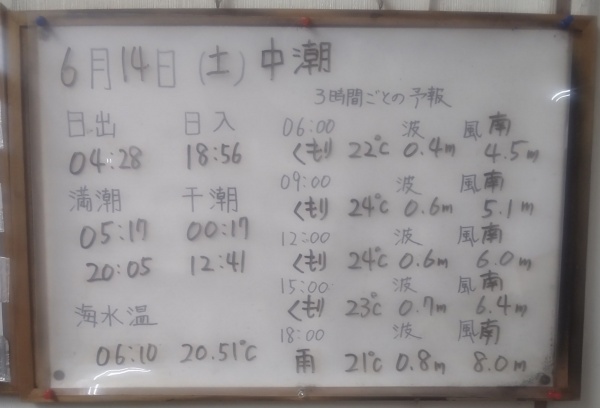 6月14日(土)中潮
3時間ごとの予報
日出 日入
04:28 18:56
満潮 干潮
05:17 00:17
20:05 12:41
海水温
06:10 20.51℃
06:00 波 風南
くもり 22℃ 0.4m 4.5m
09:00 波 風南
くもり 24℃ 0.6m 5.1m
12:00 波 風南
くもり 24℃ 0.6m 6.0m
15:00 波 風南
くもり 23℃ 0.7m 6.4m
18:00 波 風南
雨 21℃ 0.8m 8.0m